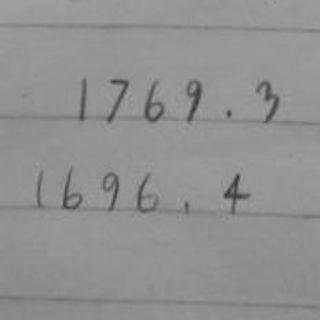 1769.3
1696.4